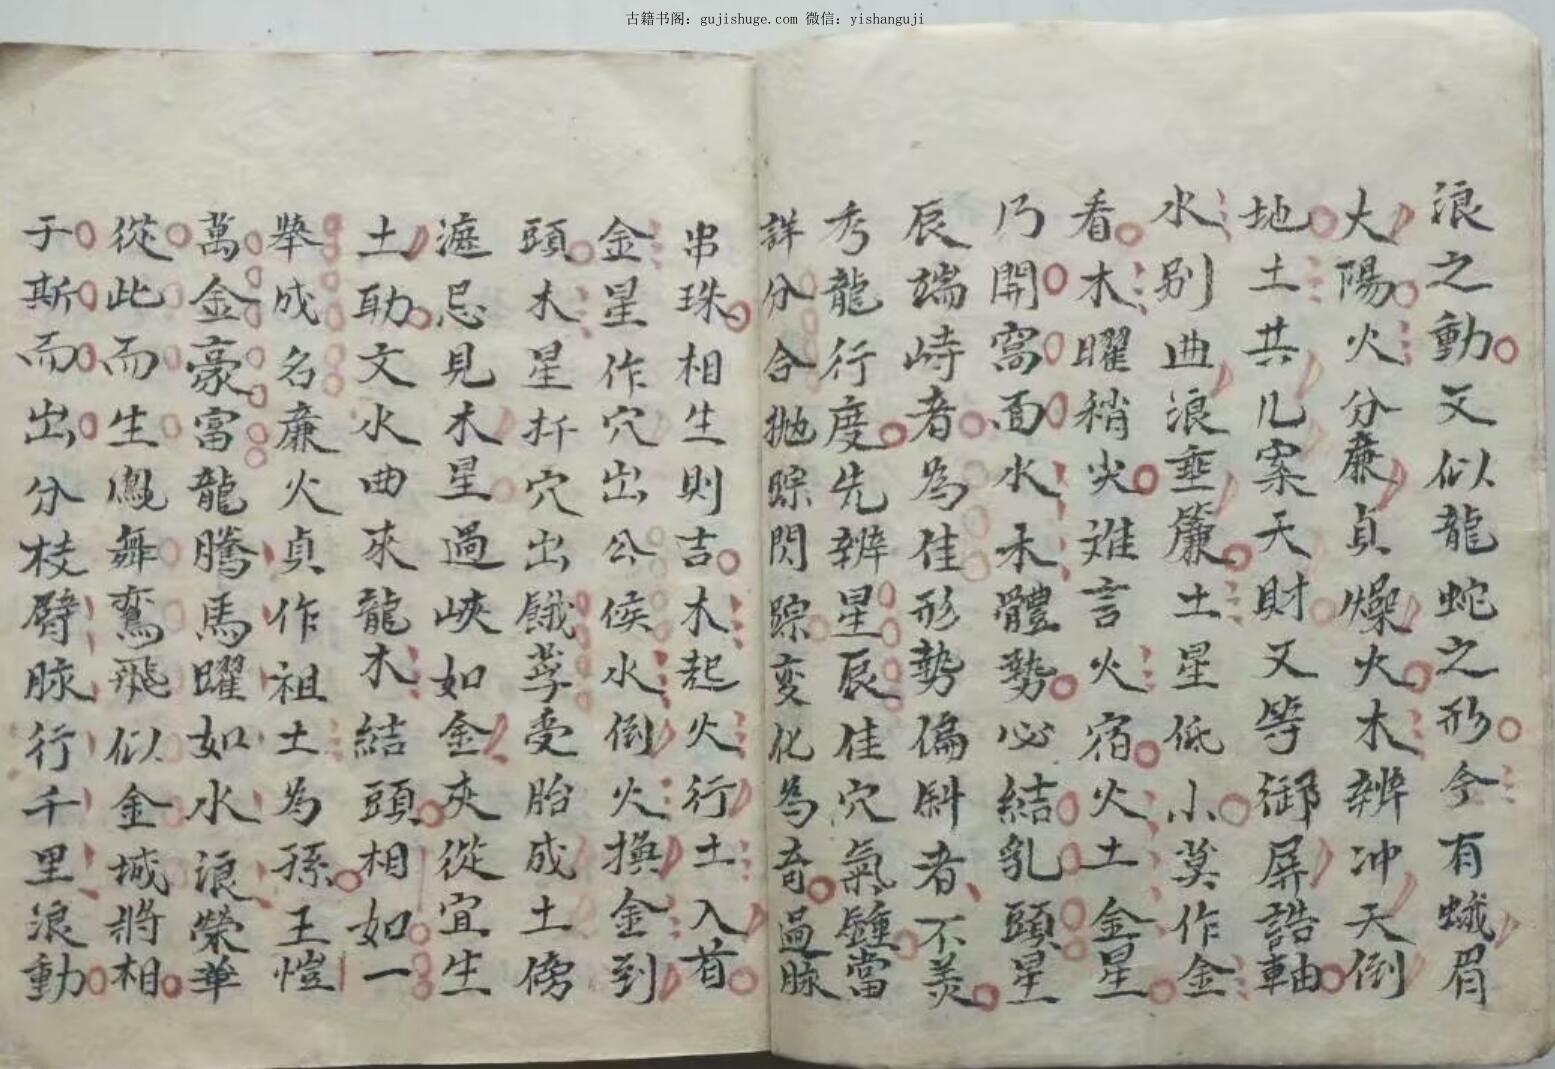 古籍书阁：gujishuge.com 微信：yishanguji
浪之動文似龍蛇之形今有蛾眉
太陽火分廉貞燥火木辨冲天倒
地土共几案天財又等御屏誥軸
水别曲浪垂簾土星低小莫作金
看木曜稍尖难言火宿火土金星
乃開窩面水木體勢必結乳頭星
辰端峙者為佳形勢偏斜者不美
秀龍行度先辨星辰佳穴氣鍾當
詳分合抛踪閃踪变化為奇過脉
串珠相生則吉木起火行土入首
金星作穴出公侯水倒火換金到
頭木星扦穴出餓莩受胎成土傍
遮忌見木星過峽如金夾從宜生
土助文水曲来龍木結頭相如一
舉成名廉火貞作祖土為孫王愷
萬金豪富龍騰馬曜如水浪榮華
從此而生鳳舞鸞飛似金城將相
于斯而出分枝劈脉行千里浪動